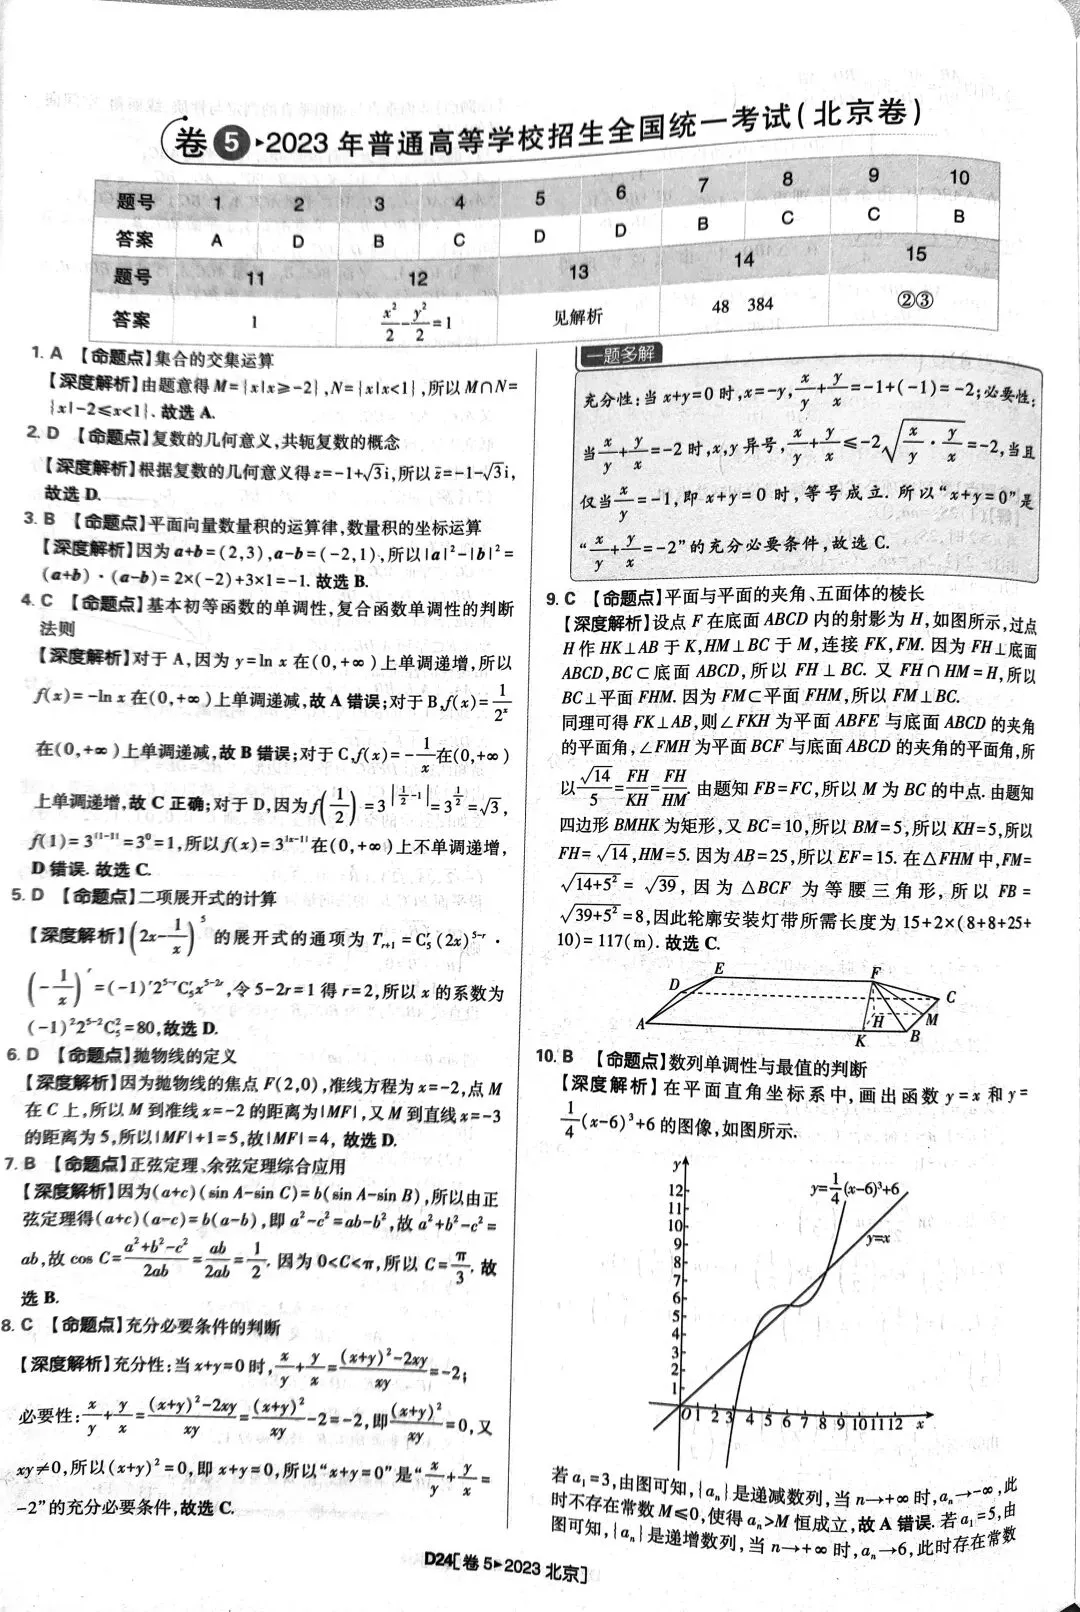 卷5▸2023年普通高等学校招生全国统一考试(北京卷)
题号 1 2 3 4 5 6 7 8 9 10
答案 A D B C D D B C C B
题号 11 12 13 14 15
答案 1 x²/2-y²/2=1 见解析 48 384 ②③
1. A 【命题点】集合的交集运算
【深度解析】由题意得M={x|x≥-2},N={x|x<1},所以M∩N=
{x|-2≤x<1}. 故选A.
2. D 【命题点】复数的几何意义,共轭复数的概念
【深度解析】根据复数的几何意义得z=-1+√3i,所以z̄=-1-√3i,
故选D.
3. B 【命题点】平面向量数量积的运算律,数量积的坐标运算
【深度解析】因为a+b=(2,3),a-b=(-2,1),所以|a|²-|b|²=
(a+b)·(a-b)=2×(-2)+3×1=-1. 故选B.
4. C 【命题点】基本初等函数的单调性,复合函数单调性的判断
法则
【深度解析】对于A,因为y=ln x在(0,+∞)上单调递增,所以
f(x)=-ln x在(0,+∞)上单调递减,故A错误;对于B,f(x)=1/2ˣ
在(0,+∞)上单调递减,故B错误;对于C,f(x)=-1/x在(0,+∞)
上单调递增,故C正确;对于D,因为f(1/2)=3^|1/2-1|=3^(1/2)=√3,
f(1)=3^|1-1|=3⁰=1,所以f(x)=3^|x-1|在(0,+∞)上不单调递增,
D错误. 故选C.
5. D 【命题点】二项展开式的计算
【深度解析】(2x-1/x)⁵的展开式的通项为Tr+1=C₅ʳ(2x)⁵⁻ʳ·
(-1/x)ʳ=(-1)ʳ2⁵⁻ʳC₅ʳx⁵⁻²ʳ,令5-2r=1得r=2,所以x的系数为
(-1)²2⁵⁻²C₅²=80,故选D.
6. D 【命题点】抛物线的定义
【深度解析】因为抛物线的焦点F(2,0),准线方程为x=-2,点M
在C上,所以M到准线x=-2的距离为|MF|,又M到直线x=-3
的距离为5,所以|MF|+1=5,故|MF|=4, 故选D.
7. B 【命题点】正弦定理、余弦定理综合应用
【深度解析】因为(a+c)(sin A-sin C)=b(sin A-sin B),所以由正
弦定理得(a+c)(a-c)=b(a-b),即a²-c²=ab-b²,故a²+b²-c²=
ab,故cos C=(a²+b²-c²)/2ab=ab/2ab=1/2. 因为0<C<π,所以C=π/3. 故
选B.
8. C 【命题点】充分必要条件的判断
【深度解析】充分性:当x+y=0时,x/y+y/x=((x+y)²-2xy)/xy=-2;
必要性:x/y+y/x=((x+y)²-2xy)/xy=(x+y)²/xy-2=-2,即(x+y)²/xy=0,又
xy≠0,所以(x+y)²=0,即x+y=0,所以“x+y=0”是“x/y+y/x=
-2”的充分必要条件,故选C.
一题多解
充分性:当x+y=0时,x=-y,x/y+y/x=-1+(-1)=-2;必要性:
当x/y+y/x=-2时,x,y异号,x/y+y/x≤-2√(x/y·y/x)=-2,当且
仅当x/y=-1,即x+y=0时,等号成立. 所以“x+y=0”是
“x/y+y/x=-2”的充分必要条件,故选C.
9. C 【命题点】平面与平面的夹角、五面体的棱长
【深度解析】设点F在底面ABCD内的射影为H,如图所示,过点
H作HK⊥AB于K,HM⊥BC于M,连接FK,FM. 因为FH⊥底面
ABCD,BC⊂底面ABCD,所以FH⊥BC. 又FH∩HM=H,所以
BC⊥平面FHM. 因为FM⊂平面FHM,所以FM⊥BC.
同理可得FK⊥AB,则∠FKH为平面ABFE与底面ABCD的夹角
的平面角,∠FMH为平面BCF与底面ABCD的夹角的平面角,所
以√14/5=FH/KH=FH/HM. 由题知FB=FC,所以M为BC的中点. 由题知
四边形BMHK为矩形,又BC=10,所以BM=5,所以KH=5,所以
FH=√14,HM=5. 因为AB=25,所以EF=15. 在△FHM中,FM=
√(14+5²)=√39,因为△BCF为等腰三角形,所以FB=
√(39+5²)=8,因此轮廓安装灯带所需长度为15+2×(8+8+25+
10)=117(m). 故选C.
E F
D C
A H M
K B
10. B 【命题点】数列单调性与最值的判断
【深度解析】在平面直角坐标系中,画出函数y=x和y=
1/4(x-6)³+6的图像,如图所示.
y
y=1/4(x-6)³+6
y=x
12
11
10
9
8
7
6
5
4
3
2
1
O 1 2 3 4 5 6 7 8 9 10 11 12 x
若a₁=3,由图可知,{aₙ}是递减数列,当n→+∞时,aₙ→-∞,此
时不存在常数M≤0,使得aₙ>M恒成立,故A错误. 若a₁=5,由
图可知,{aₙ}是递增数列,当n→+∞时,aₙ→6,此时存在常数
D24[卷5▸2023北京]